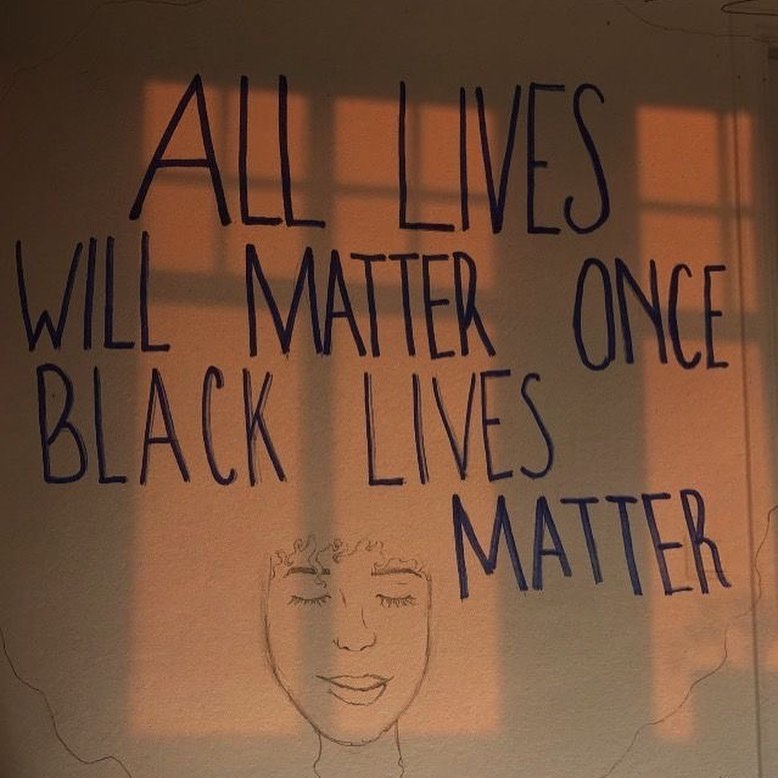 ALL LIVES
WILL MATTER ONCE
BLACK LIVES
MATTER